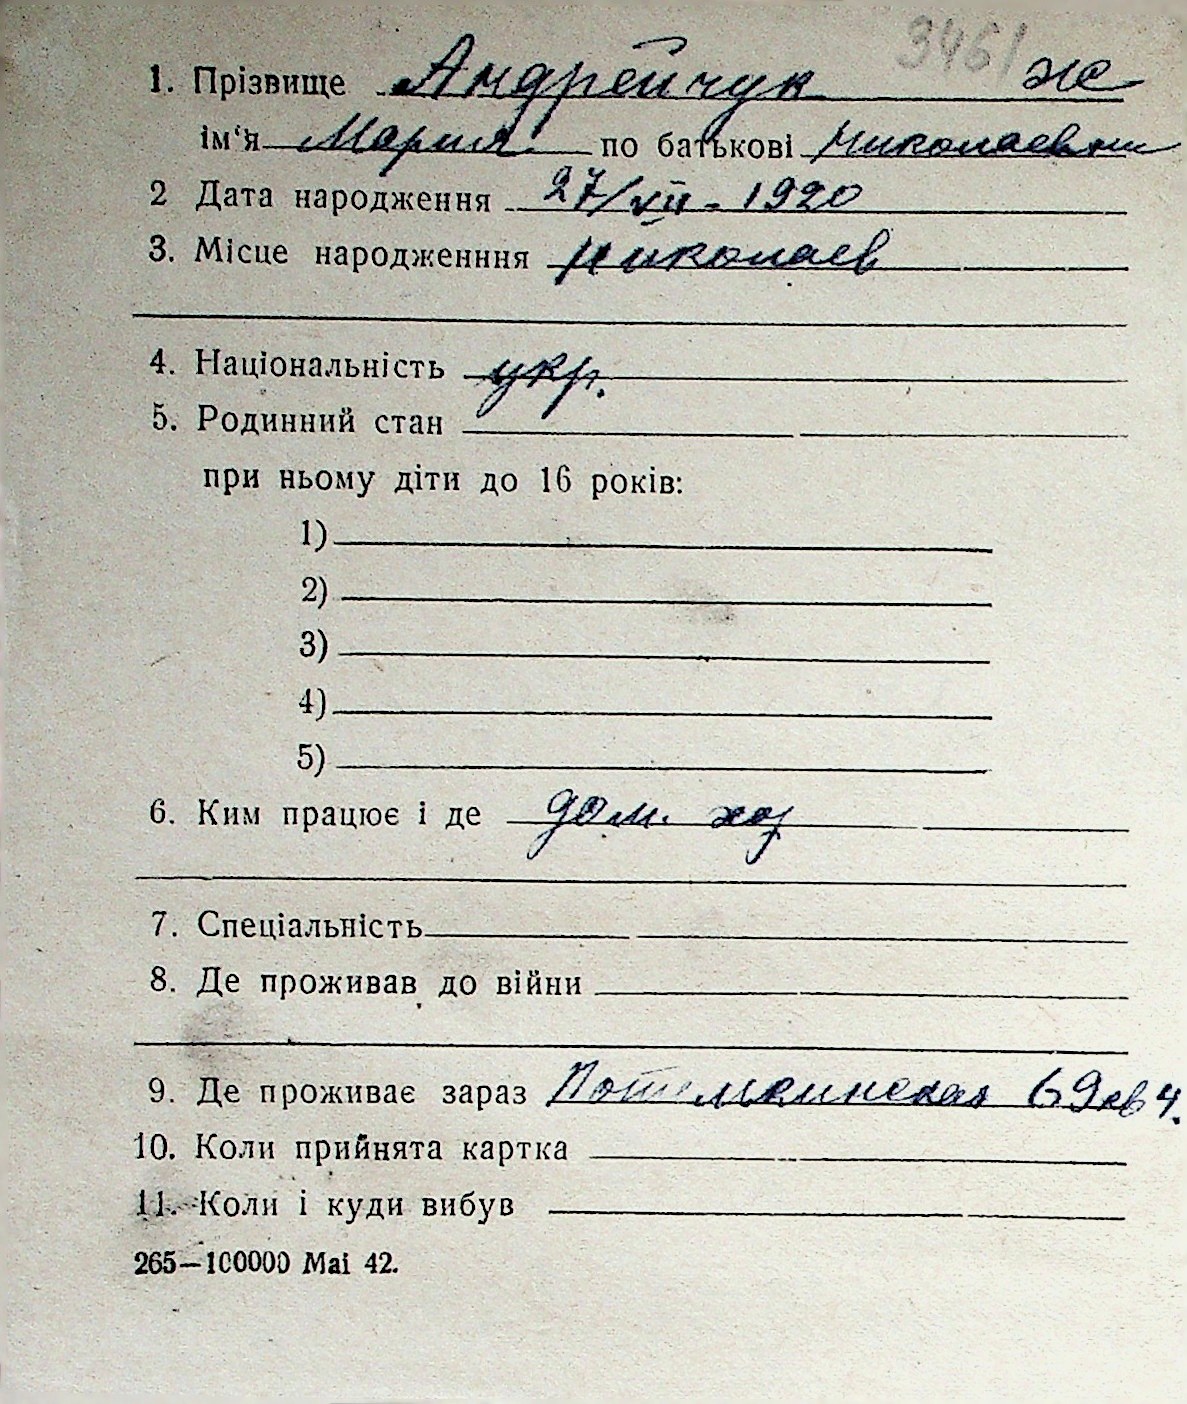 3461
1. Прізвище Андрейчук ж
ім'я Мария по батькові Николаевн
2 Дата народження 27/VII - 1920
3. Місце народженння Николаев
4. Національність укр.
5. Родинний стан
при ньому діти до 16 років:
1)
2)
3)
4)
5)
6. Ким працює і де дом. хоз
7. Спеціальність
8. Де проживав до війни
9. Де проживає зараз Потемкинская 69 кв 4.
10. Коли прийнята картка
11. Коли і куди вибув
265—100000 Mai 42.